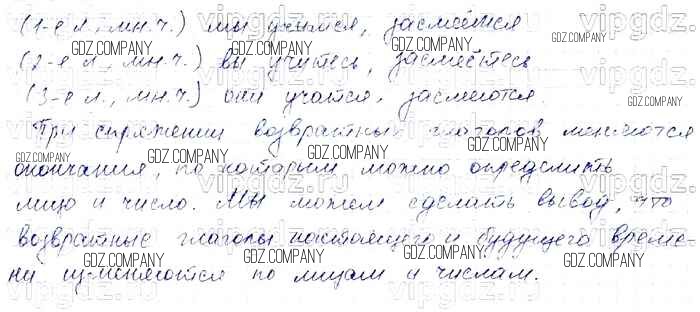 (1-е л., мн.ч.) мы учимся, засмеёмся
(2-е л., мн.ч.) вы учитесь, засмеётесь
(3-е л., мн.ч.) они учатся, засмеются.
При спряжении возвратных глаголов меняются
окончания, по которым можно определить
лицо и число. Мы можем сделать вывод, что
возвратные глаголы настоящего и будущего време-
ни изменяются по лицам и числам.